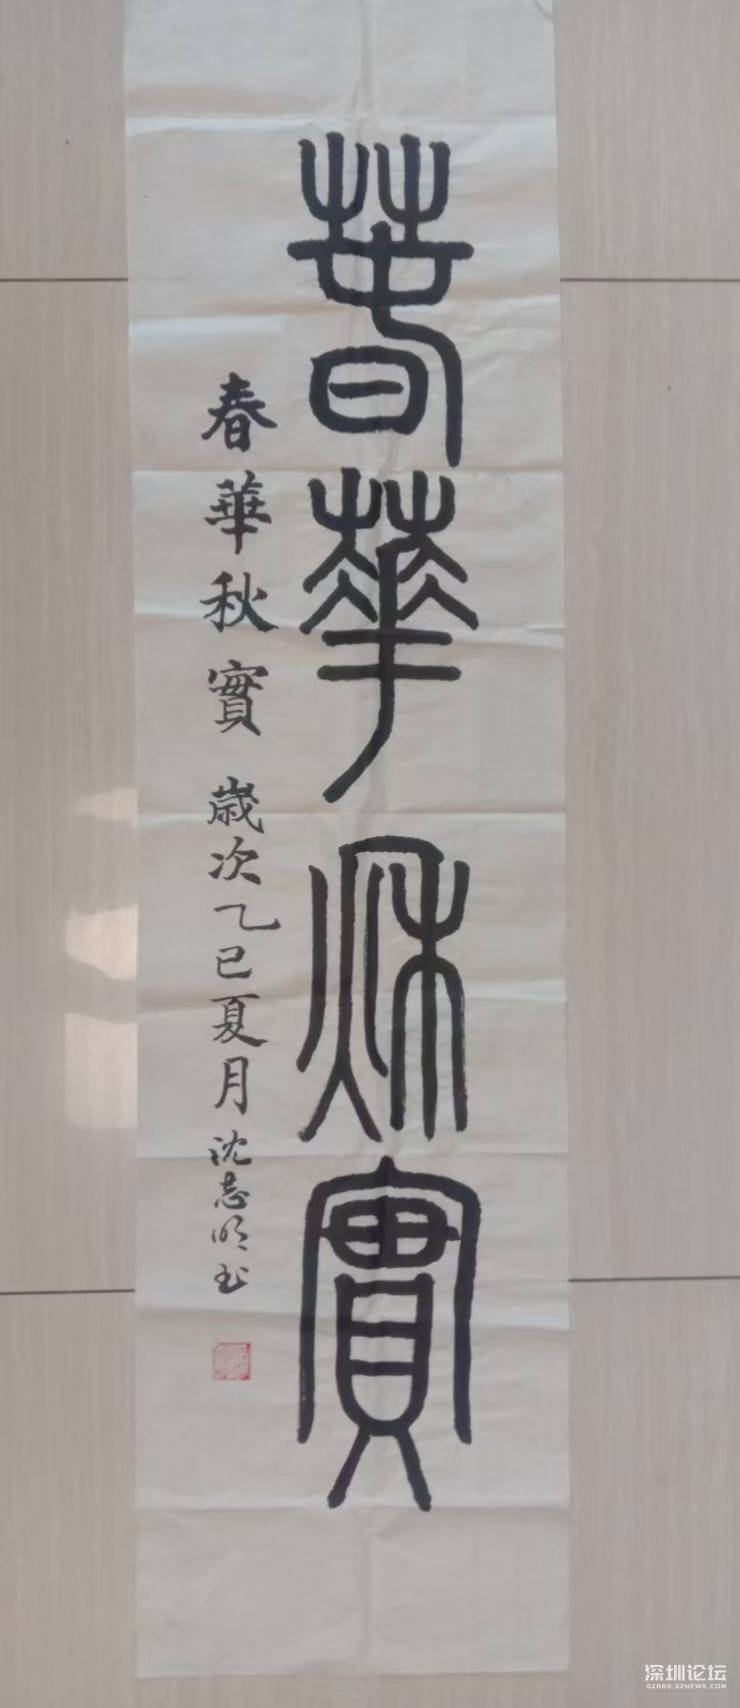 春華秋實
春華秋實 歲次乙巳夏月沈志明书
深圳论坛
SZBBS.SZNEWS.COM